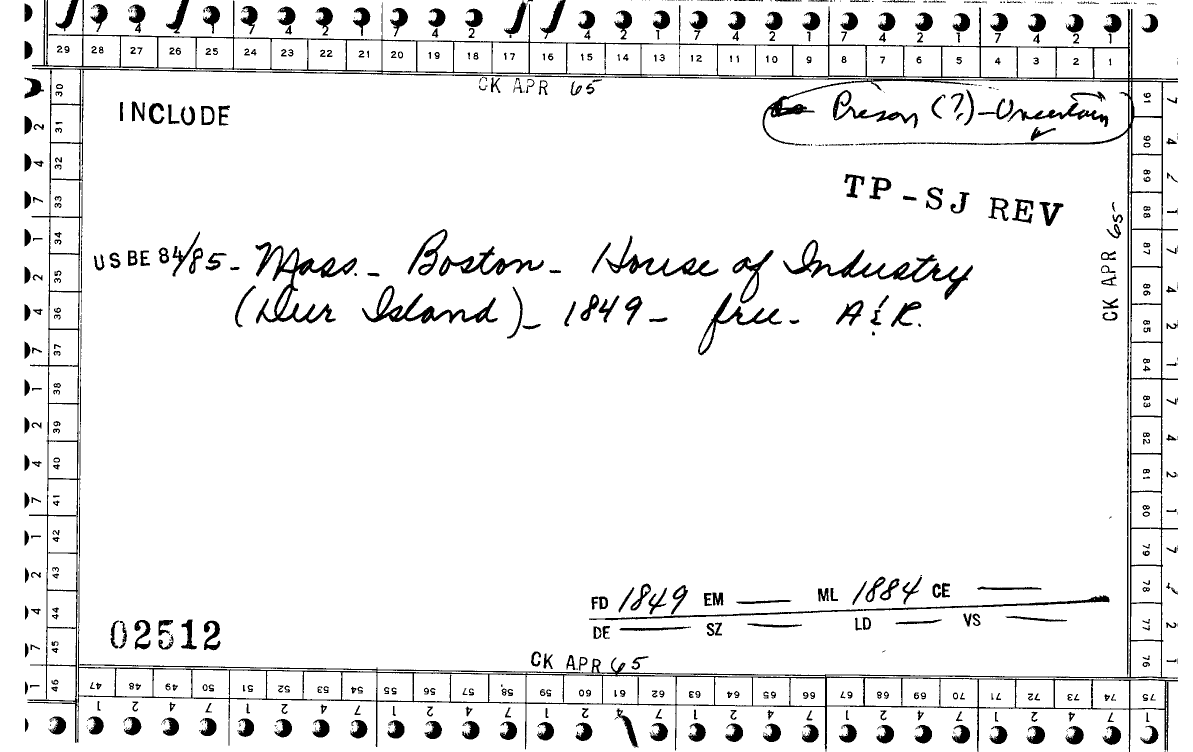 7 4 7 4 2 1 7 4 2 1 7 4 2 1 7 4 2 1 7 4 2 1
29 28 27 26 25 24 23 22 21 20 19 18 17 16 15 14 13 12 11 10 9 8 7 6 5 4 3 2 1
CK APR 65
INCLUDE
Prison (?) - Uncertain
TP - SJ REV
US BE 84/85 - Mass. - Boston - House of Industry
(Deer Island) - 1849 - free - A & R.
CK APR 65
FD 1849 EM — ML 1884 CE —
DE — SZ — LD — VS —
02512
CK APR 65
30 31 32 33 34 35 36 37 38 39 40 41 42 43 44 45 46
91 90 89 88 87 86 85 84 83 82 81 80 79 78 77 76
47 48 49 50 51 52 53 54 55 56 57 58 59 60 61 62 63 64 65 66 67 68 69 70 71 72 73 74 75